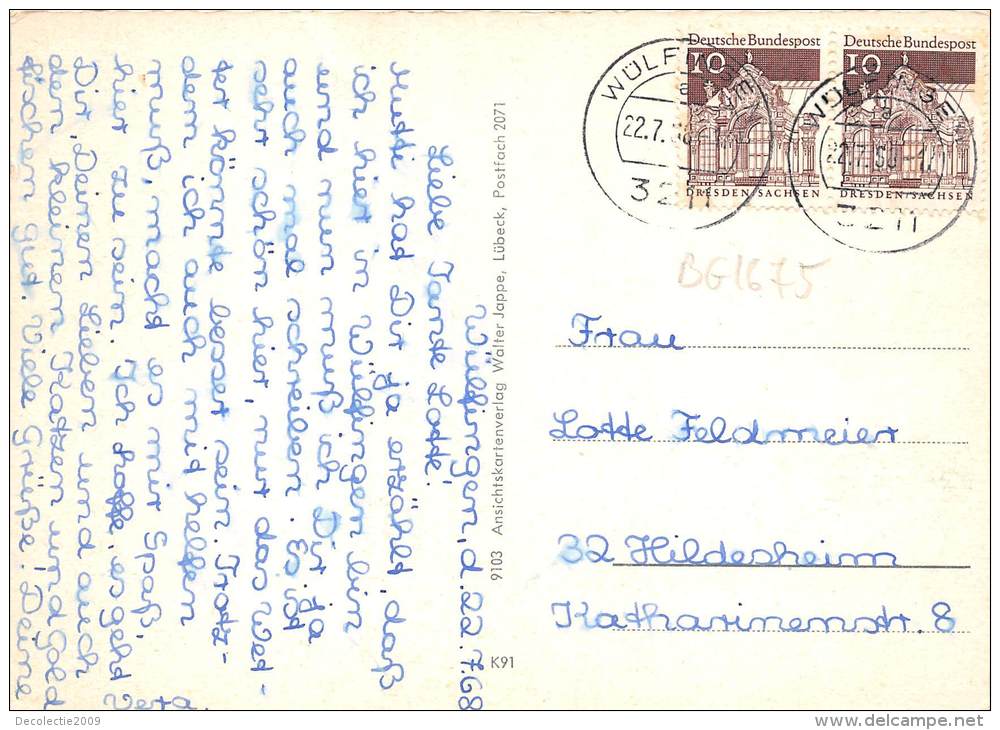 Wülfingen, d. 22.7.68
Liebe Tante Lotte!
Mutti had Dir ja erzähld, daß
ich hier in Wülfingen bin
und nun muß ich Dir ja
auch mal schreiben. Es ist
sehr schön hier, nur das Wet-
ter könnte besser sein. Trotz-
dem ich auch mid helfen
muß, machd es mir Spaß,
hier zu sein. Ich hoffe, es gehd
Dir, Deinen Lieben und auch
den kleinen Katzen und Gold
fischen gud. Viele Grüße! Deine
9103 Ansichtskartenverlag Walter Jappe, Lübeck, Postfach 2071
K91
Deutsche Bundespost
10
DRESDEN/SACHSEN
Deutsche Bundespost
10
DRESDEN/SACHSEN
22.7.68
3211
22.7.68
3211
BG1675
Frau
Lotte Feldmeier
32 Hildesheim
Katharinenstr. 8
Decolectie2009
www.delcampe.net